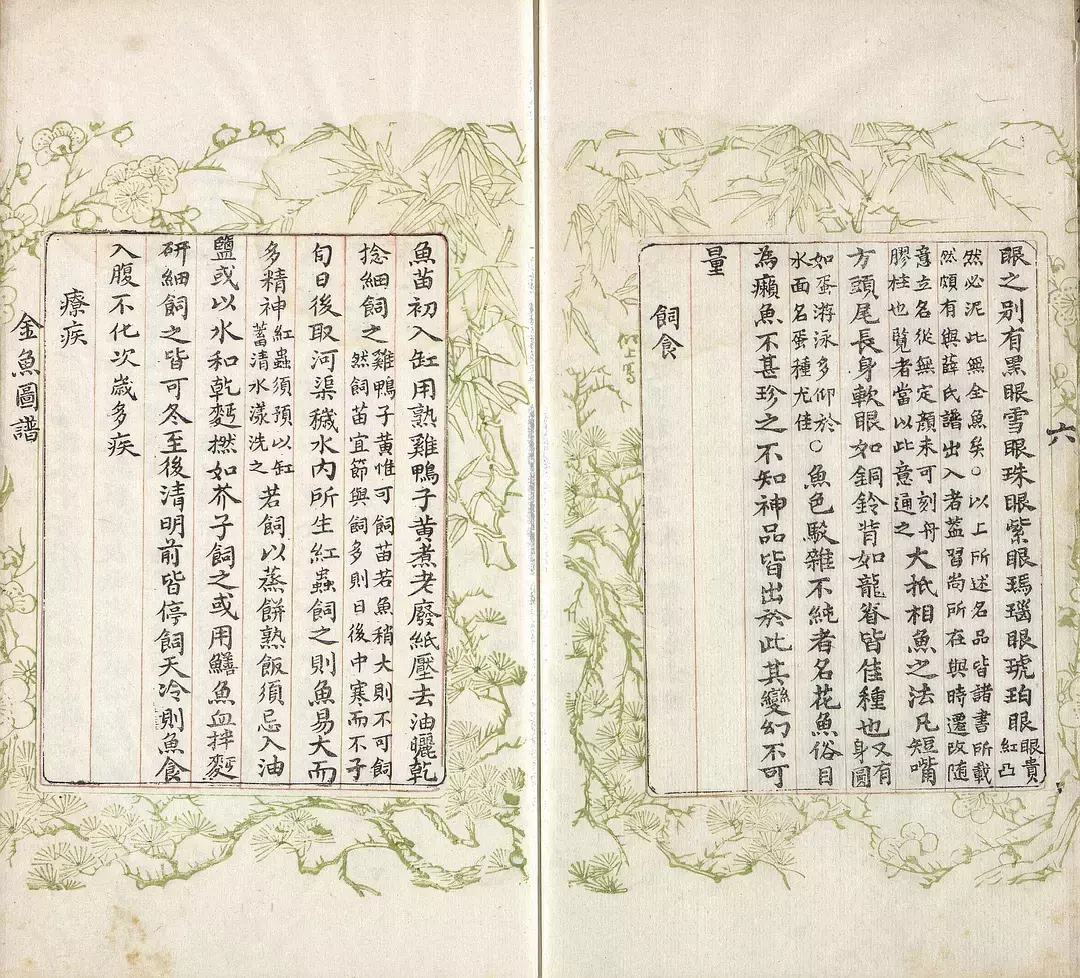 眼之別有黑眼雪眼珠眼紫眼瑪瑙眼琥珀眼眼貴紅凸
然必泥此無全魚矣○以上所述名品皆諸書所載
然頗有與薛氏譜出入者蓋習尚所在與時遷改隨
意立名從無定顏未可刻舟膠柱也覽者當以此意通之大抵相魚之法凡短嘴
方頭尾長身軟眼如銅鈴背如龍脊皆佳種也又有身圓
如蛋游泳多仰於水面名蛋種尤佳○魚色駁雜不純者名花魚俗目
為癩魚不甚珍之不知神品皆出於此其變幻不可
量
飼食
六
魚苗初入缸用熟雞鴨子黃煮老廢紙壓去油曬乾
捻細飼之雞鴨子黃惟可飼苗若魚稍大則不可飼然飼苗宜節與飼多則日後中寒而不子
旬日後取河渠穢水內所生紅蟲飼之則魚易大而
多精神紅蟲須預以缸蓄清水漾洗之若飼以蒸餅熟飯須忌入油
鹽或以水和乾麪撚如芥子飼之或用鱔魚血拌麪
研細飼之皆可冬至後清明前皆停飼天冷則魚食
入腹不化次歲多疾
療疾
金魚圖譜